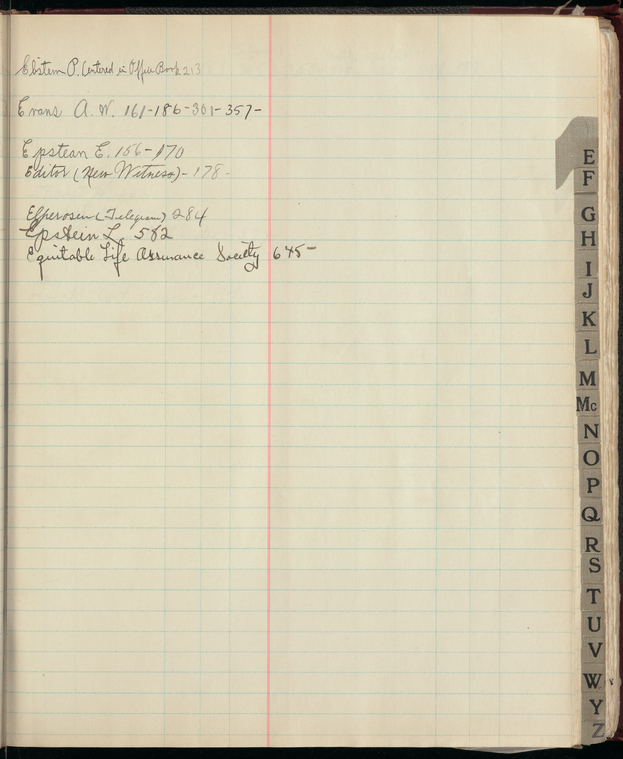 Ebstem P. (entered in Office Book 213
Evans A. W. 161-186-301-357-
Epstean E. 156-170
Editor (New Witness)- 178-
(Telegram) 284
Epstein L. 582
Equitable Life Assurance Society 645-
E
F
G
H
I
J
K
L
M
Mc
N
O
P
Q
R
S
T
U
V
W
Y
Z